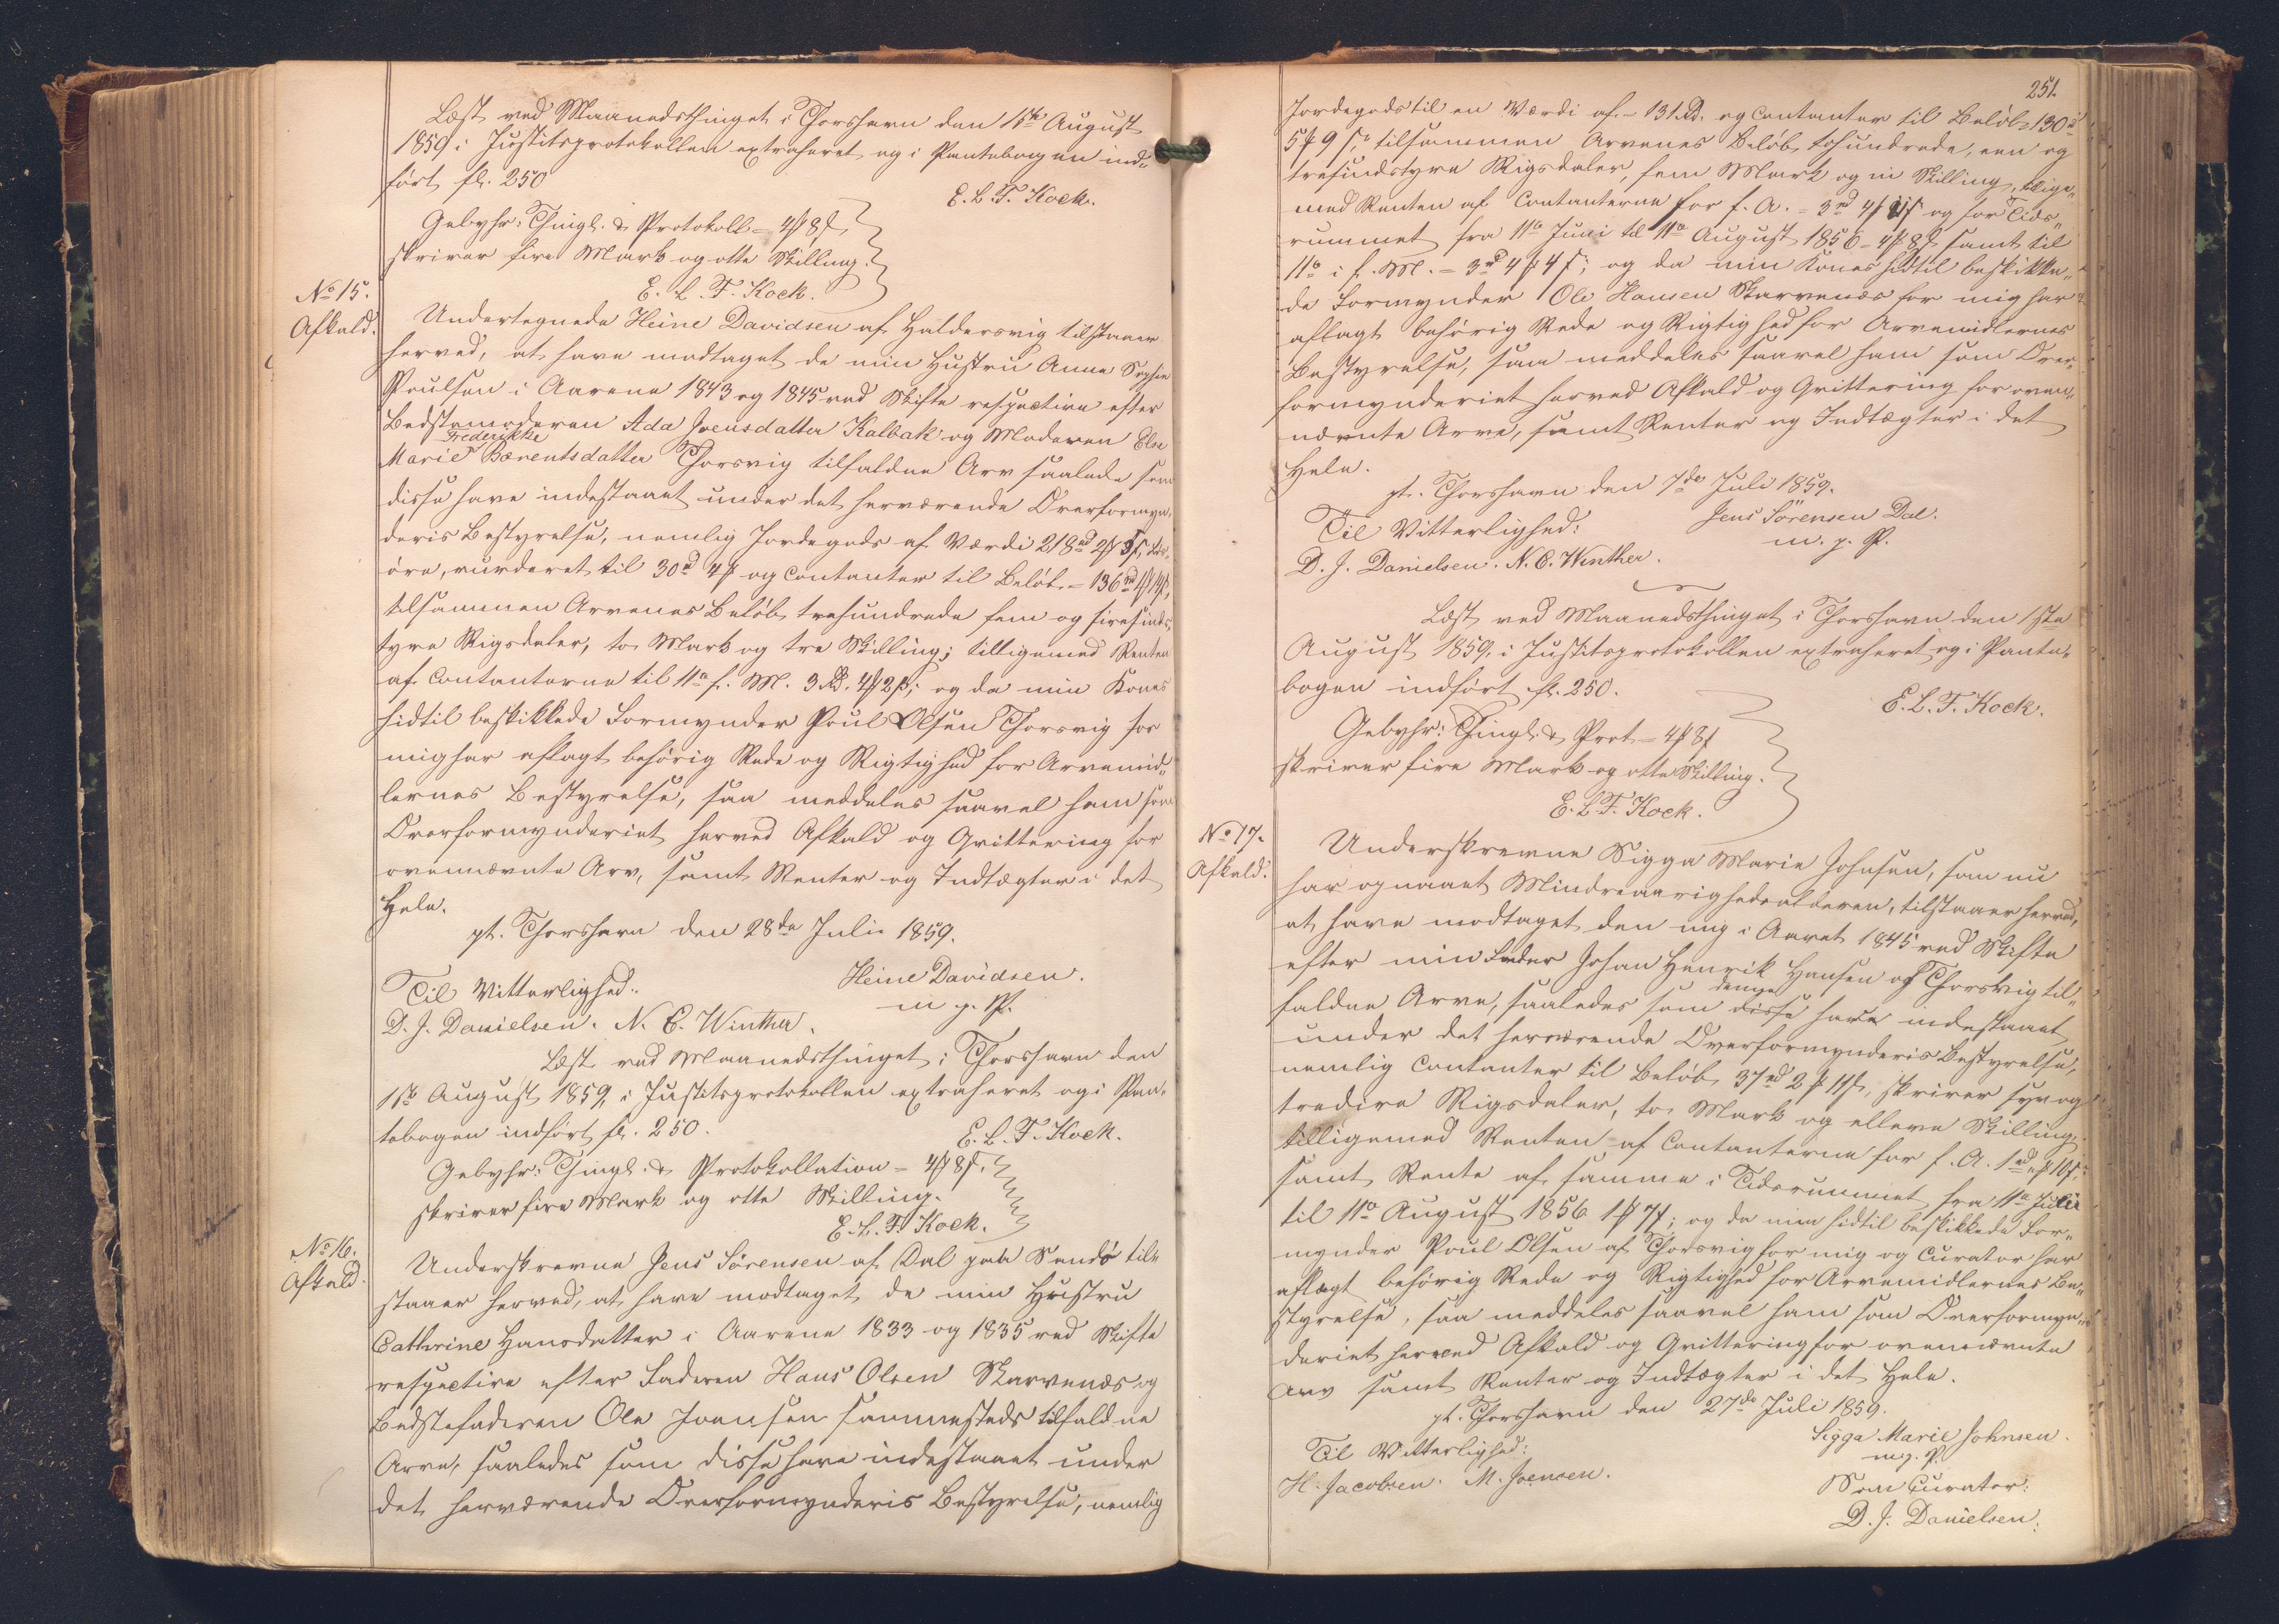 Læst ved Maanedsthinget i Thorshavn den 1ste August
1859 i Justitsprotokollen extraheret og i Pantebogen ind-
ført fl. 250
E. L. T. Kock.
Gebyhr: Thingl. & Protokoll = 4 ₻ 8 ß,
skriver fire Mark og otte Skilling.
E. L. T. Kock.
No 15.
Afkald.
Undertegnede Heine Davidsen af Haldersvig tilstaaer
herved, at have modtaget de min Hustru Anna Sophie
Poulsen i Aarene 1843 og 1845 ved Skifte respective efter
Bedstemoderen Ada Joensdatter Kalbak og Moderen Else
Frederikke
Marie Bærentsdatter Thorsvig tilfaldne Arv saalede som
disse have indestaaet under det herværende Overformyn-
deris Bestyrelse, nemlig Jordegods af Værdi 218 rd 2 ₻ 5 ß,
øre, vurderet til 30 rd 4 ₻ og Contanter til Beløb = 136 rd 1 ₻ 14 ß,
tilsammen Arvenes Beløb trehundrede fem og firesinds-
tyve Rigsdaler, to Mark og tre Skilling; tilligemed Renten
af Contanterne til 11te f. M. 3 Rd. 4 ₻ 2 ß; og da min Kones
hidtil beskikkede Formynder Poul Olsen Thorsvig for
mig har aflagt behørig Rede og Rigtighed for Arvemid-
lernes Bestyrelse, saa meddeles saavel ham som
Overformynderiet herved Afkald og Qvittering for
ovennævnte Arv, samt Renter og Indtægter i det
Hele.
pt. Thorshavn den 28de Juli 1859.
Heine Davidsen.
m. p. P.
Til Vitterlighed:
D. J. Danielsen. N. C. Winther.
Læst ved Maanedsthinget i Thorshavn den
1ste August 1859, i Justitsprotokollen extraheret og i Pan-
tebogen indført fl. 250.
E. L. T. Kock.
Gebyhr: Thingl. & Protokollation = 4 ₻ 8 ß.
skriver fire Mark og otte Skilling.
E. L. T. Kock.
No 16.
Afkald.
Underskrevne Jens Sørensen af Dal paa Sandø til-
staaer herved, at have modtaget de min Hustru
Cathrine Hansdatter i Aarene 1833 og 1835 ved Skifte
respective efter Faderen Hans Olsen Skarvenæs og
Bedstefaderen Ole Joensen sammesteds tilfaldne
Arve, saaledes som disse have indestaaet under
det herværende Overformynderis Bestyrelse, nemlig
251.
Jordegods til en Værdi af = 131 Rd. og Contanter til Beløb 130 rd
5 ₻ 9 ß; tilsammen Arvenes Beløb tohundrede, een og
tresindstyve Rigsdaler, fem Mark og ni Skilling, tillige-
med Renten af Contanterne for f. A. = 3 rd 4 ₻ og for Tids-
rummet fra 11te Juni til 11te August 1856 = 4 ₻ 8 ß samt til
11te i f. M. = 3 rd 4 ₻ 4 ß; og da min Kones hidtil beskikke-
de Formynder Ole Hansen Skarvenæs for mig har
aflagt behørig Rede og Rigtighed for Arvemidlernes
Bestyrelse, saa meddeles saavel ham som Over-
formynderiet herved Afkald og Qvittering for oven-
nævnte Arve, samt Renter og Indtægter i det
Hele.
pt. Thorshavn den 7de Juli 1859.
Jens Sörensen Dal.
m. p. P.
Til Vitterlighed:
D. J. Danielsen. N. C. Winther.
Læst ved Maanedsthinget i Thorshavn den 1ste
August 1859, i Justitsprotokollen extraheret og i Pante-
bogen indført fl. 250.
E. L. T. Kock.
Gebyhr: Thingl. & Prot = 4 ₻ 8 ß
skriver fire Mark og otte Skilling.
E. L. T. Kock.
No 17.
Afkald.
Underskrevne Sigga Marie Johnsen, som nu
har opnaaet Mindreaarighedsalderen, tilstaaer herved,
at have modtaget den mig i Aaret 1845 ved Skifte
efter min Fader Johan Henrik Hansen af Thorsvig til-
denne
faldne Arve, saaledes som disse have indestaaet
under det herværende Overformynderis Bestyrelse,
nemlig Contanter til Beløb 37 rd 2 ₻ 11 ß, skriver syv og
tredive Rigsdaler, to Mark og elleve Skilling,
tilligemed Renten af Contanterne for f. A. 1 rd " ₻ 10 ß,
samt Rente af samme i Tidsrummet fra 11te Juni
til 11te August 1856 1 ₻ 7 ß; og da min hidtil beskikkede For-
mynder Poul Olsen af Thorsvig for mig og Curator har
aflagt behørig Rede og Rigtighed for Arvemidlernes Be-
styrelse, saa meddeles saavel ham som Overformyn-
deriet herved Afkald og Qvittering for ovennævnte
Arv samt Renter og Indtægter i det Hele.
pt. Thorshavn den 27de Juli 1859.
Sigga Marie Johnsen.
m. p. P.
Til Vitterlighed:
H. Jacobsen. M. Joensen.
Som Curator:
D. J. Danielsen.